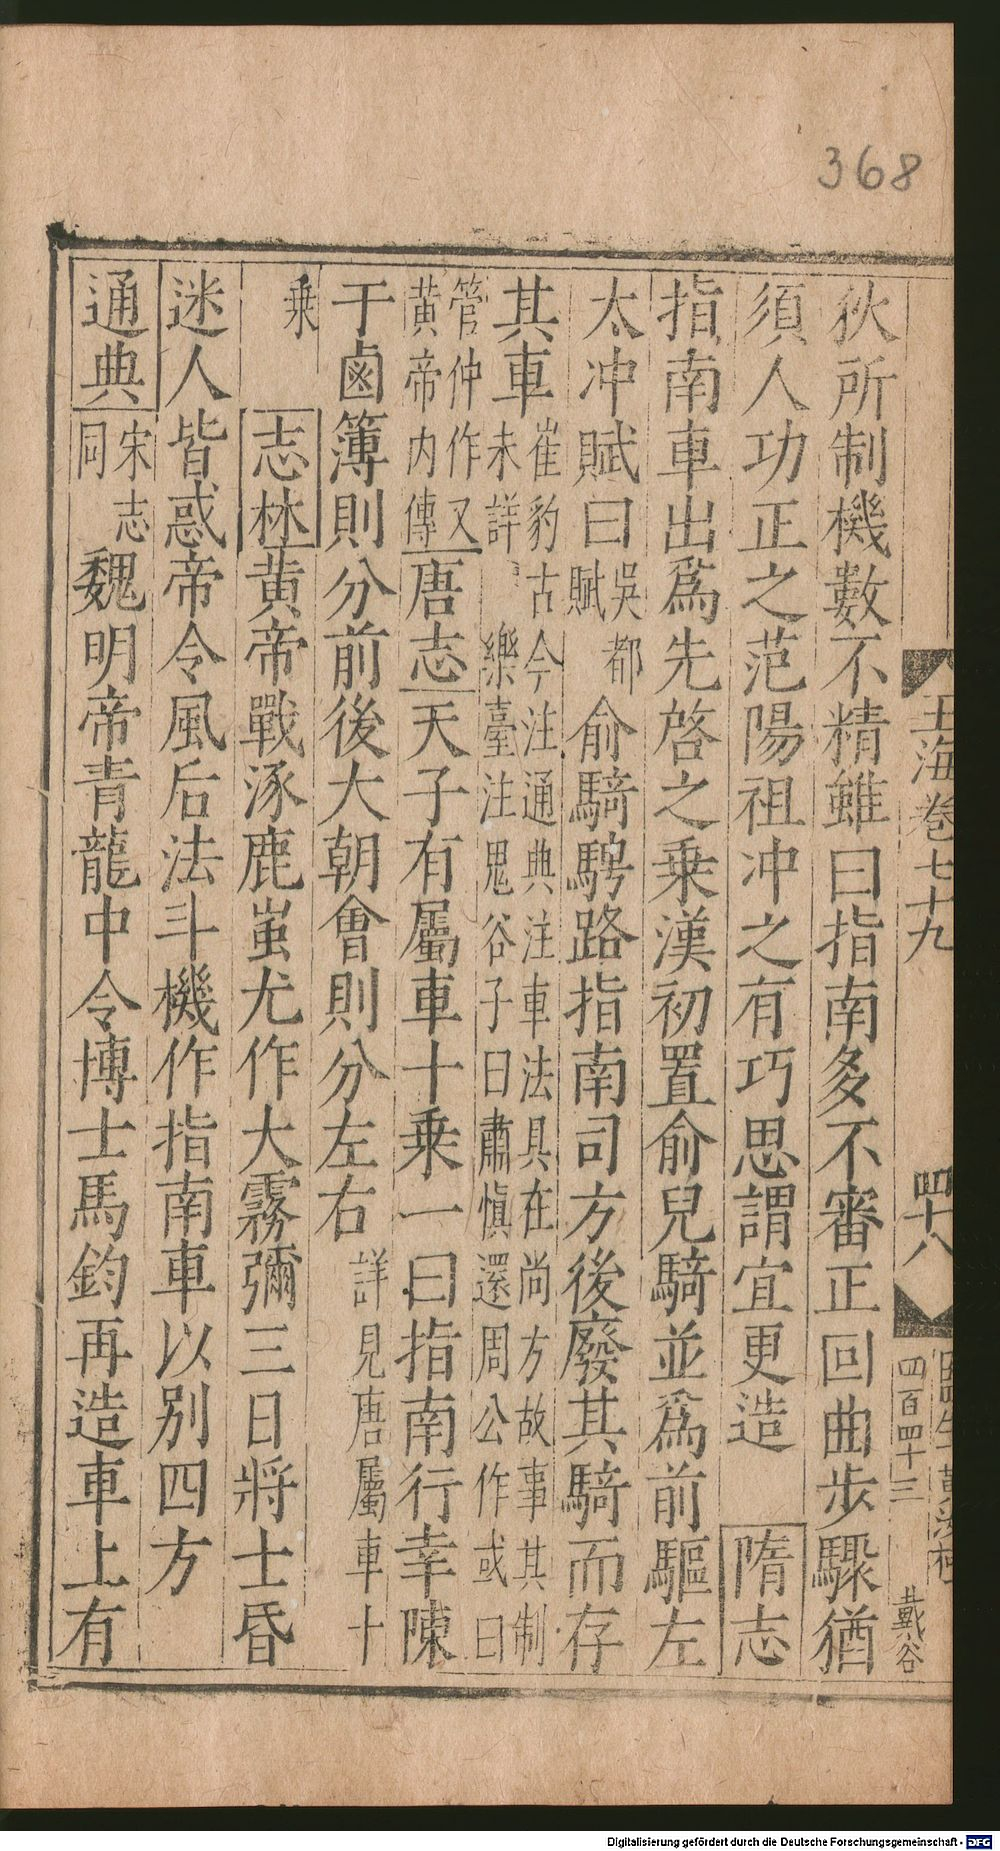 368
玉海卷七十九
四十八
四百四十三
戴谷
狄所制機數不精雖曰指南多不審正回曲步驟猶
須人功正之范陽祖冲之有巧思謂宜更造 隋志
指南車出爲先啓之乗漢初置俞兒騎並爲前驅左
太冲賦曰吳都賦俞騎騁路指南司方後廢其騎而存
其車崔豹古今注通典注車法具在尚方故事其制
未詳 樂臺注鬼谷子曰肅愼還周公作或曰
管仲作又
黄帝内傳唐志天子有屬車十乗一曰指南行幸陳
于鹵簿則分前後大朝會則分左右詳見唐屬車十
乗 志林黄帝戰涿鹿蚩尤作大霧彌三日將士昏
迷人皆惑帝令風后法斗機作指南車以别四方
通典宋志同魏明帝青龍中令博士馬鈞再造車上有
Digitalisierung gefördert durch die Deutsche Forschungsgemeinschaft - DFG